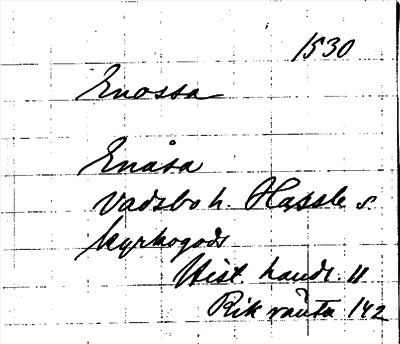 1530
Enossa
Enåsa
Vadsbo h. Hassle s.
kyrkogods
Hist. handl. 11
Rik ränta 142